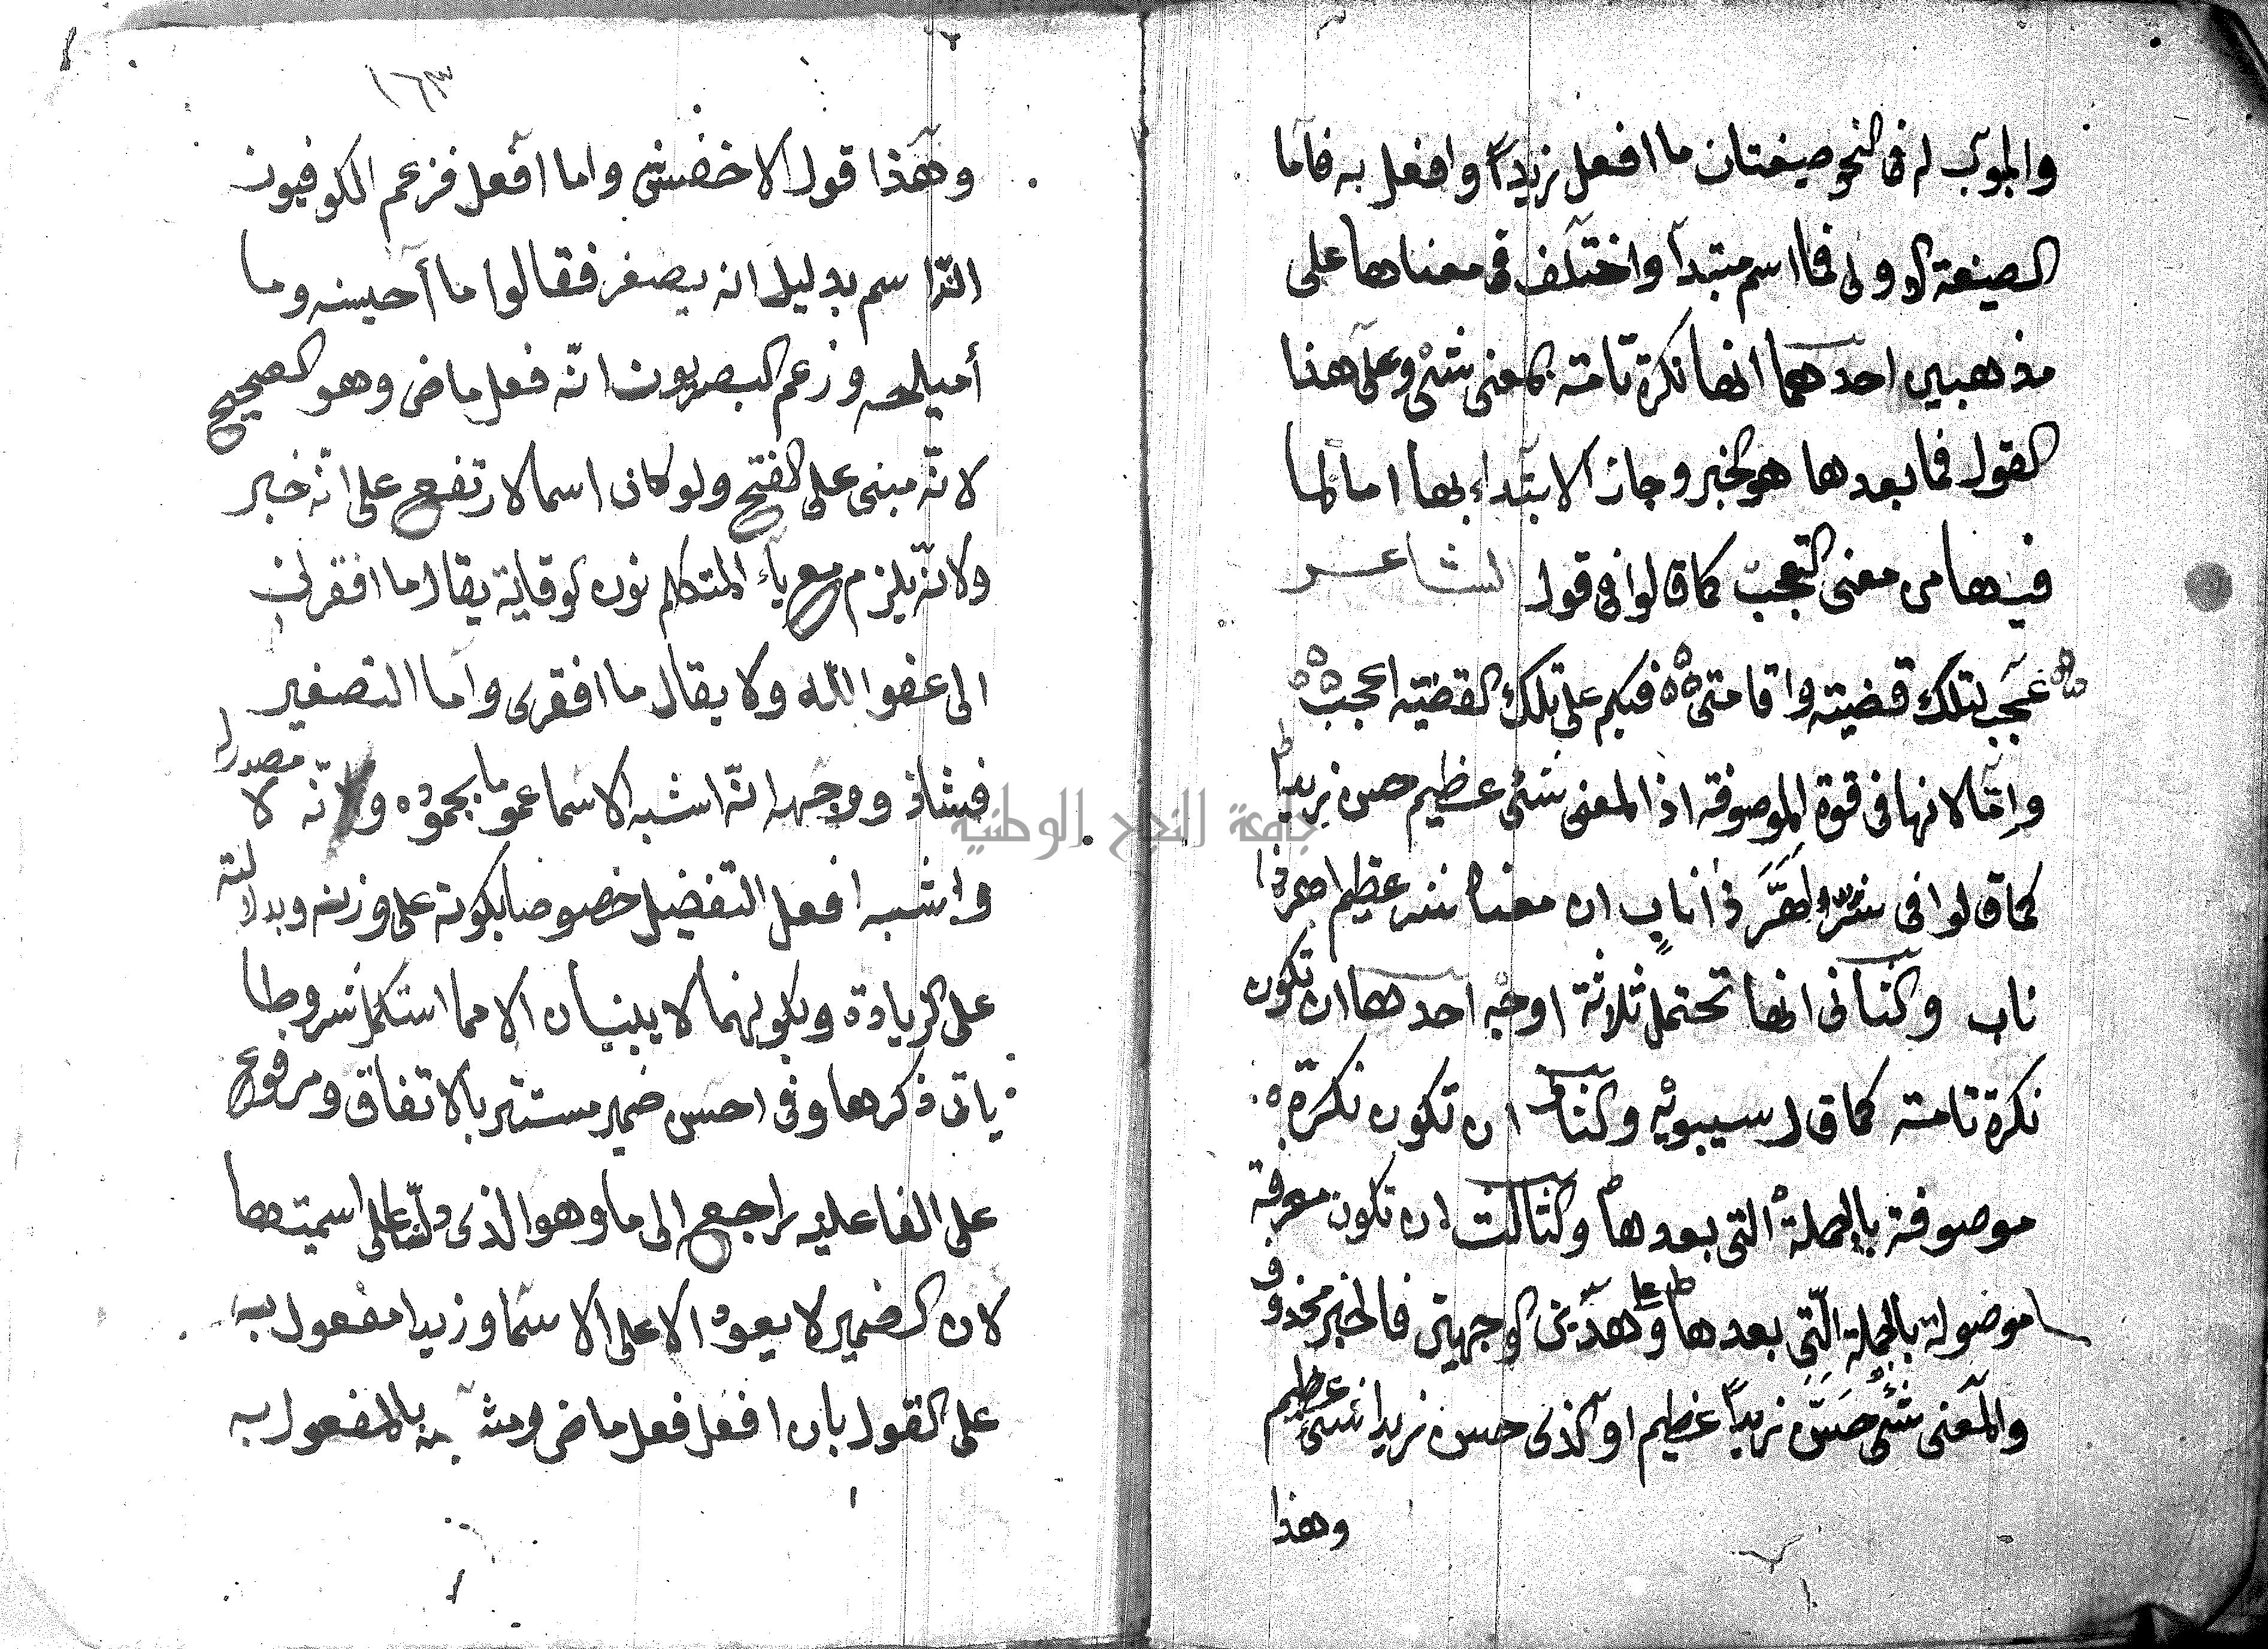 والمبوب له في النحو صيغتان ما افعل زيدًا وافعل به فاما
الصيغة الاولى فما اسم مبتدأ واختلف في معناها على
مذهبين احدهما انها نكرة تامة بمعنى شئ وعلى هذا
القول فما بعدها هو الخبر وجاز الابتداء بها اما لما
فيها من معنى التعجب كما قالوا في قول الشاعر
عجب لتلك قضية واقامتى فيكم على تلك القضية اعجب
واما لانها في قوة الموصوفة اذ المعنى شئ عظيم حسن زيدا
كما قالوا في شر اهر ذا ناب ان معناه شر عظيم اهر ذا
ناب والثاني انها تحتمل ثلاثة اوجه احدها ان تكون
نكرة تامة كما قال سيبويه والثانى ان تكون نكرة
موصوفة بالجملة التى بعدها والثالث ان تكون معرفة
موصولة بالجملة التي بعدها وعلى هذين الوجهين فالخبر محذوف
والمعنى شئ حسن زيدًا عظيم او الذى حسن زيدا شئ عظيم
وهذا
١٦٣
وهذا قول الاخفش واما افعل فزعم الكوفيون
انه اسم بدليل انه يصغر فقالوا ما أحيسنه وما
أميلحه وزعم البصريون انه فعل ماض وهو الصحيح
لانه مبنى على الفتح ولو كان اسما لارتفع على انه خبر
ولانه يلزم مع ياء المتكلم نون الوقاية يقال ما افقرني
الى عفو الله ولا يقال ما افقرى واما التصغير
فشاذ ووجهه انه اشبه الاسما عموما بجموده ولانه لا مصدر له
واشبه افعل التفضيل خصوصا بكونه على وزنه وبدلالته
على الزيادة وبكونهما لا يبنيان الا مما استكمل شروطا
ياتى ذكرها وفي احسن ضمير مستتر بالاتفاق ومرفوع
على الفاعلية راجع الى ما وهو الذى دلنا على اسميتها
لان الضمير لا يعود الا على الاسما وزيدا مفعول به
على القول بان افعل فعل ماض ومشبه بالمفعول به
جامعة النجاح الوطنية